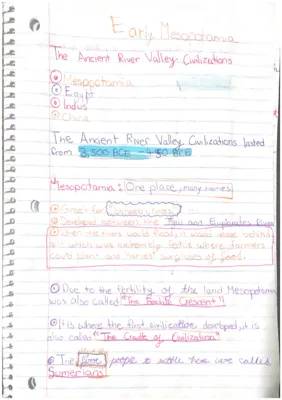 Early Mesopotamia
The Ancient River Valley Civilizations
Mesopotamia
Egypt
Indus
China
The Ancient River Valley Civilizations lasted
from 3,500 BCE - 450 BCE
Mesopotamia: One place, many names
Developed between the Tigris and Euphrates Rivers
When the rivers would flood, it would leave behind
silt which was extremely fertile where farmers
could plant and harvest surpluses of food.
Due to the fertility of the land Mesopotamia
was also called "The Fertile Crescent"!
It is where the first civilization developed, it is
also called "The Cradle of Civilization"
The people to settle there were called
Sumerians